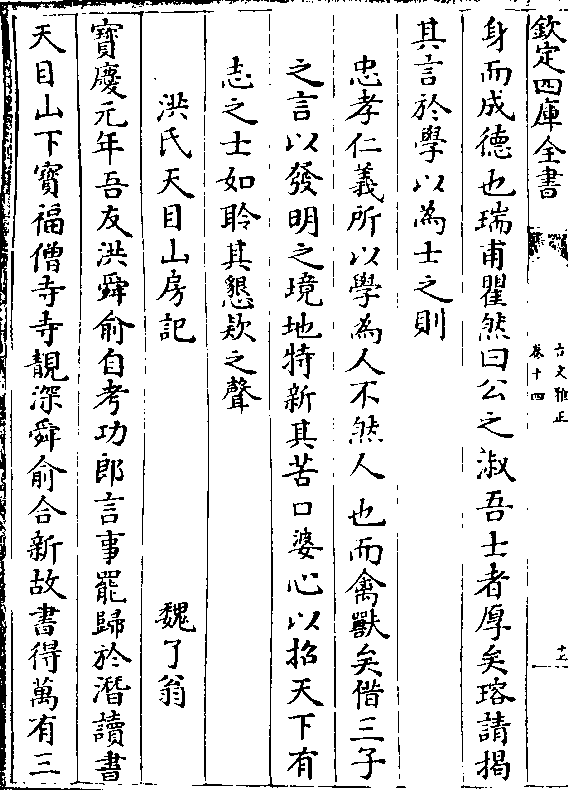 欽定四庫全書
古文雅正
卷十四
身而成德也瑞甫瞿然曰公之淑吾士者厚矣瑢請揭
其言於學以為士之則
忠孝仁義所以學為人不然人也而禽獸矣借三子
之言以發明之境地特新其苦口婆心以招天下有
志之士如聆其懇欵之聲
洪氏天目山房記 魏了翁
寶慶元年吾友洪舜俞自考功郎言事罷歸於潛讀書
天目山下寶福僧寺寺靚深舜俞合新故書得萬有三